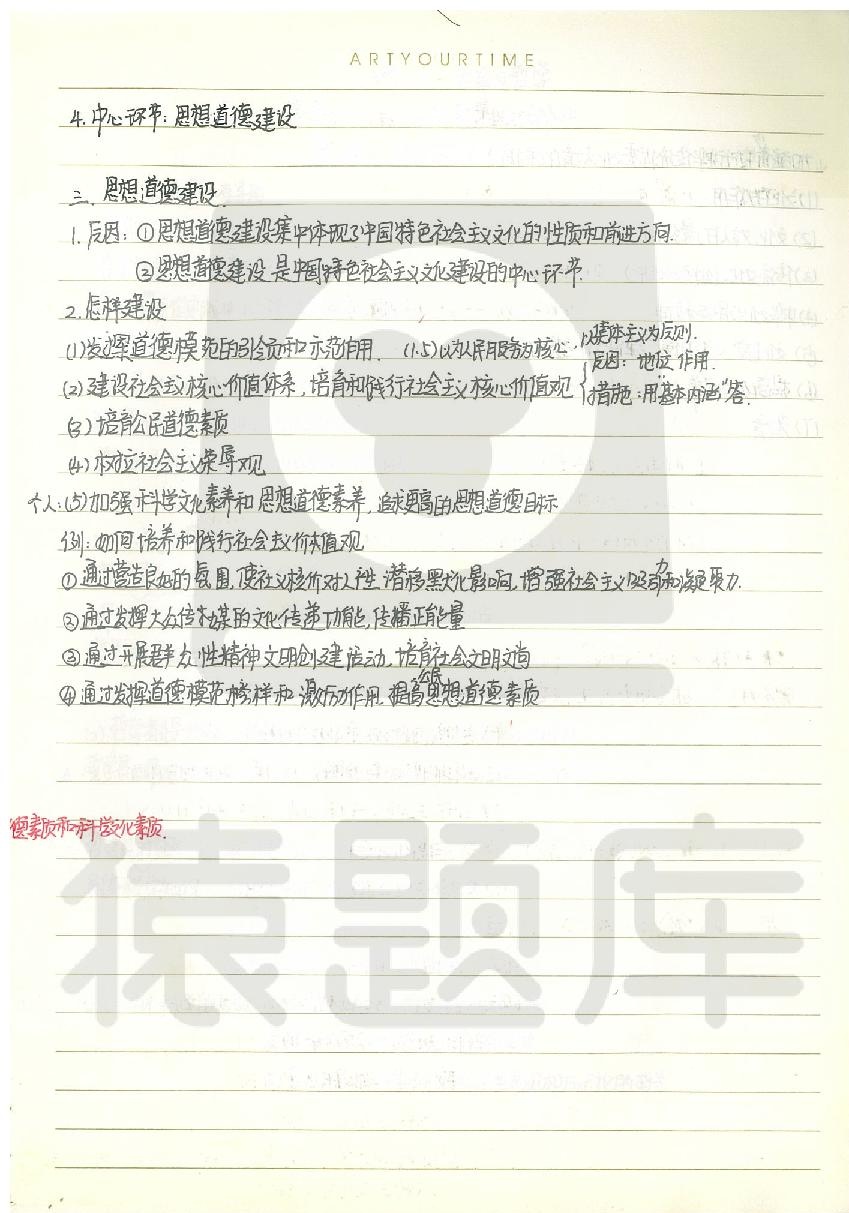 ARTYOURTIME
4. 中心环节：思想道德建设
三. 思想道德建设.
1. 反因：①思想道德建设集中体现了中国特色社会主义文化的性质和前进方向.
②思想道德建设是中国特色社会主义文化建设的中心环节.
2. 怎样建设
(1)发挥道德模范的引领和示范作用. (1.5)以为人民服务为核心，以集体主义为原则.
(2)建设社会主义核心价值体系，培育和践行社会主义核心价值观
反因：地位作用.
措施：用"基本内涵"答.
(3)培育公民道德素质
(4)树立社会主义荣辱观
个人：(5)加强科学文化素养和思想道德素养，追求更高的思想道德目标
例：如何培养和践行社会主义价值观
①通过营造良好的氛围，使社义核价对人性潜移默化影响，增强社会主义吸引力和凝聚力.
②通过发挥大众传媒的文化传递功能，传播正能量
③通过开展群众性精神文明创建活动，培育社会文明风尚
④通过发挥道德模范榜样和激励作用，提高公民思想道德素质
德素质和科学文化素质.
猿题库